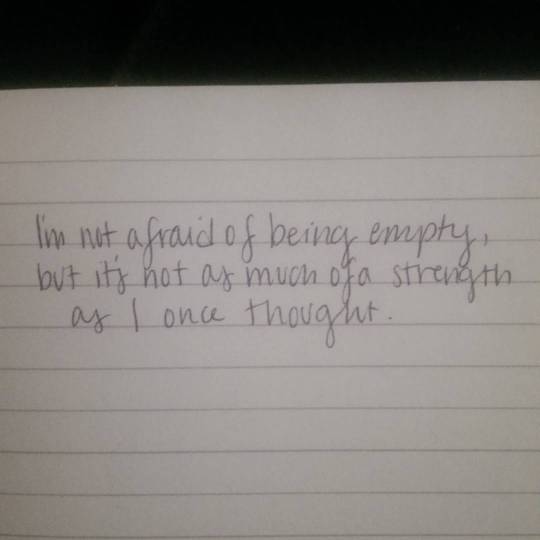 I'm not afraid of being empty,
but it's not as much of a strength
as I once thought.